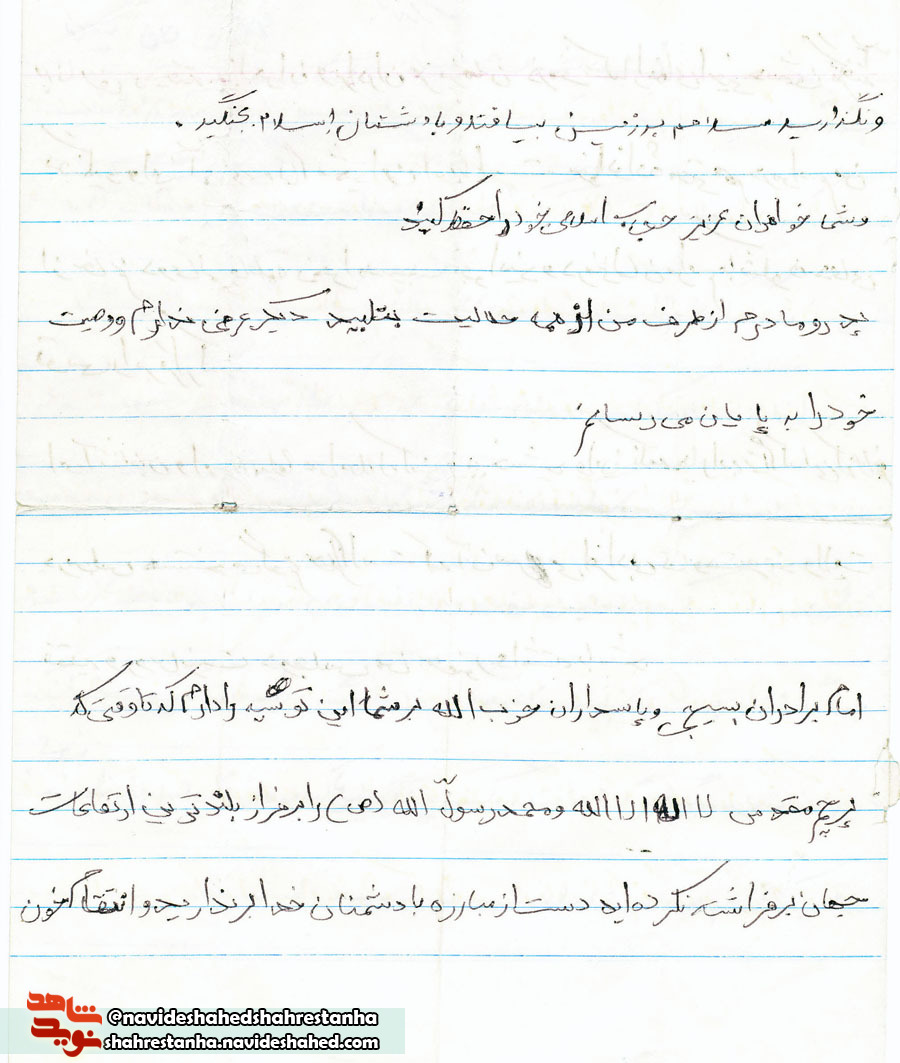 ونگذارید سلاحم برزمین بیافتد و با دشمنان اسلام بجنگید .
وشما خواهران عزیز حجاب اسلامی خود را حفظ کنید
پدر و مادرم از طرف من از همه حلالیت بتلبید دیگر عرضی ندارم و وصیت
خود را به پایان می رسانم
امام برادران بسیجی و پاسداران حزب الله بر شما این توسیه را دارم که تا وقتی که
پرچم مقدس لا اله الا الله و محمد رسول الله (ص) را بر فراز بلندترین ارتفاعات
جهان برفراشته نکرده اید دست از مبارزه با دشمنان خدا برندارید و انتقام خون
شاهد
نوید
@navideshahedshahrestanha
shahrestanha.navideshahed.com